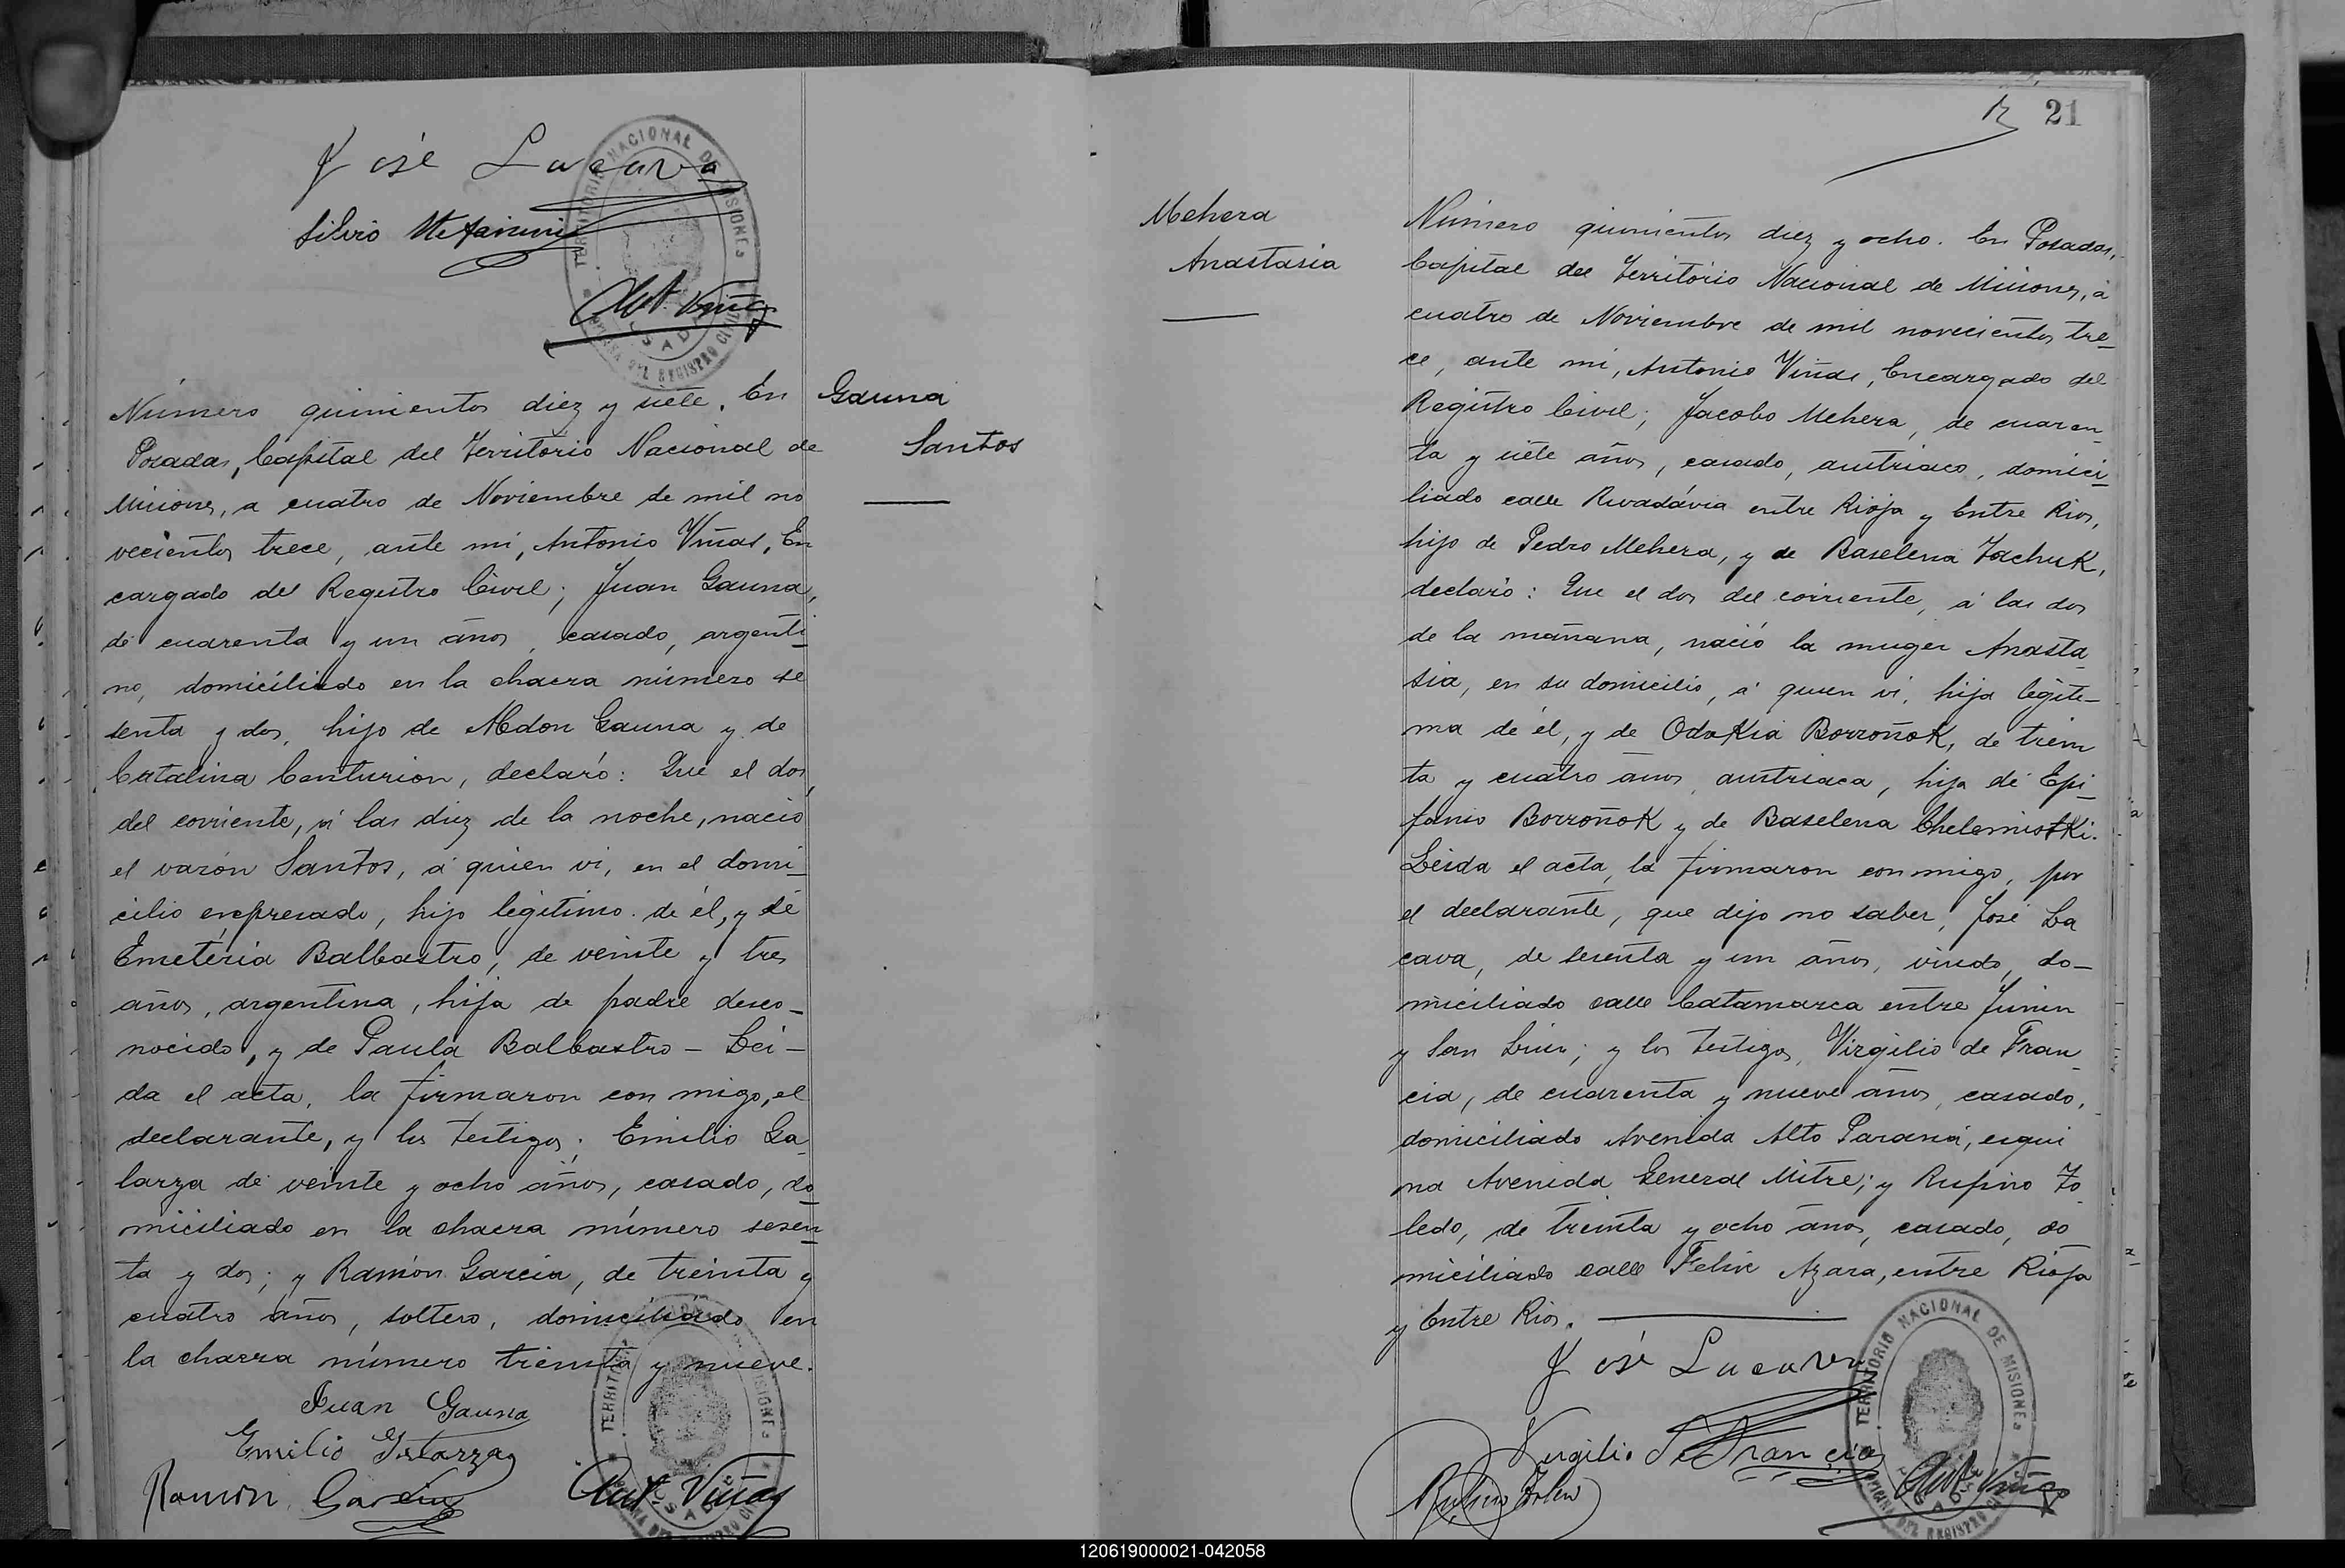 José Lacava
Silvio Stefanini
TERRITORIO NACIONAL DE MISIONES
OFICINA DEL REGISTRO CIVIL
POSADAS
Ant. Viñas
Número quinientos diez y siete. En
Posadas, Capital del Territorio Nacional de
Misiones, a cuatro de Noviembre de mil no
vecientos trece, ante mi, Antonio Viñas, En
cargado del Registro Civil; Juan Gauna,
de cuarenta y un años, casado, argenti-
no, domiciliado en la chacra número se
senta y dos, hijo de Abdon Gauna y de
Catalina Centurion, declaró: Que el dos
del corriente, á las diez de la noche, nació
el varón Santos, á quien vi, en el domi-
cilio expresado, hijo legítimo de él, y de
Emetéria Balbastro, de veinte y tres
años, argentina, hija de padre desco-
nocido, y de Paula Balbastro - Lei-
da el acta, la firmaron con migo, el
declarante, y los testigos; Emilio Ga-
larza de veinte y ocho años, casado, do-
miciliado en la chacra número sesen-
ta y dos; y Ramón García, de treinta y
cuatro años, soltero, domiciliado en
la chacra número treinta y nueve.
Juan Gauna
Emilio Galarza
Ramon Garcia
Ant. Viñas
TERRITORIO NACIONAL DE MISIONES
OFICINA DEL REGISTRO CIVIL
POSADAS
Gauna
Santos
21
Mehera
Anastasia
Número quinientos diez y ocho. En Posadas,
Capital del Territorio Nacional de Misiones, á
cuatro de Noviembre de mil novecientos tre-
ce, ante mi, Antonio Viñas, Encargado del
Registro Civil; Jacobo Mehera, de cuaren-
ta y siete años, casado, austriaco, domici-
liado calle Rivadávia entre Rioja y Entre Rios,
hijo de Pedro Mehera, y de Baselena Tachuk,
declaró: Que el dos del corriente, á las dos
de la mañana, nació la muger Anasta-
sia, en su domicilio, á quien vi, hija legíti-
ma de él, y de Odokia Borroñok, de trein
ta y cuatro años, austriaca, hija de Epi-
fanio Borroñok y de Baselena Chelemistki.
Leida el acta, la firmaron con migo, por
el declarante, que dijo no saber, José La
cava, de sesenta y un años, viudo, do-
miciliado calle Catamarca entre Junin
y San Luis; y los testigos, Virgilio de Fran-
cia, de cuarenta y nueve años, casado,
domiciliado Avenida Alto Paraná, esqui
na Avenida General Mitre; y Rufino To
ledo, de treinta y ocho años, casado, do
miciliado calle Felix Azara, entre Rioja
y Entre Rios.
José Lacava
Virgilio de Francia
Rufino Toledo
Ant. Viñas
TERRITORIO NACIONAL DE MISIONES
OFICINA DEL REGISTRO CIVIL
POSADAS
120619000021-042058